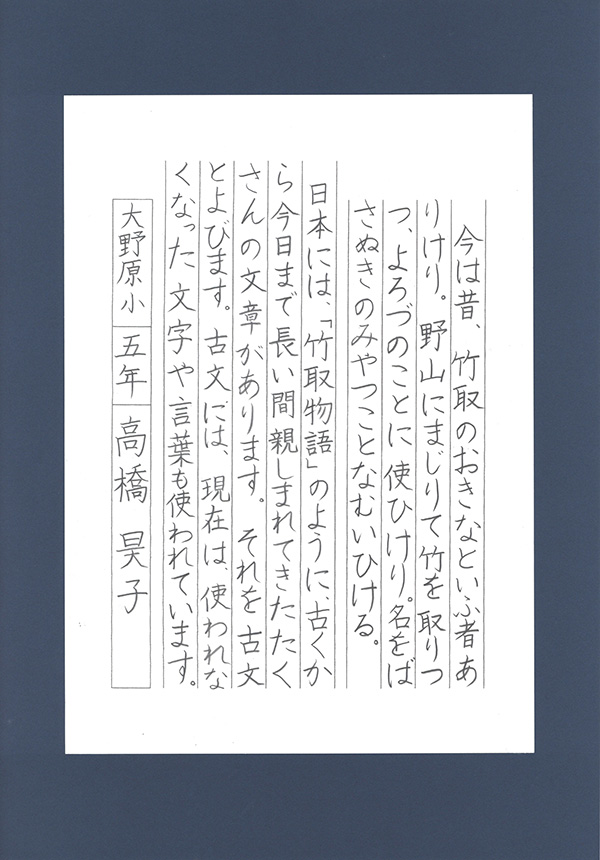 今は昔、竹取のおきなといふ者あ
りけり。野山にまじりて竹を取りつ
つ、よろづのことに使ひけり。名をば
さぬきのみやつことなむいひける。
日本には、「竹取物語」のように、古くか
ら今日まで長い間親しまれてきたたく
さんの文章があります。それを古文
とよびます。古文には、現在は、使われな
くなった文字や言葉も使われています。
大野原小 五年 高橋 昊子